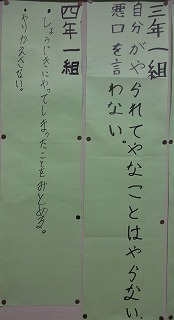 三年一組
自分がやられてやなことはやらない。
悪口を言わない。
四年一組
・しょうじきにやってしまったことをみとめる。
・やりかえさない。